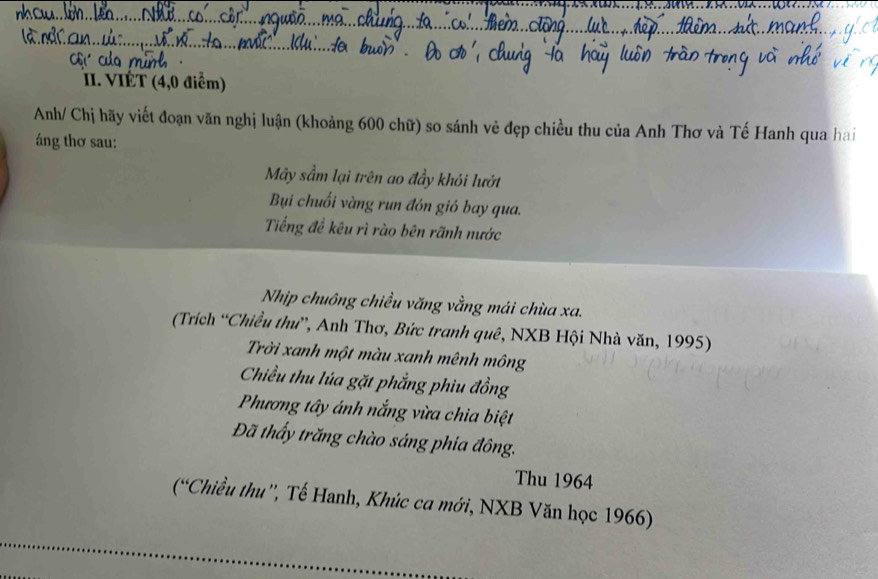 nhau lớn lên......Nhờ có cội nguồn mà chúng ta có thêm động lực, hợp thêm sức mạnh,
là nơi an ủi vỗ về ta mỗi khi ta buồn. Do đó, chúng ta hãy luôn trân trọng và nhớ về
cội của mình.
II. VIẾT (4,0 điểm)
Anh/ Chị hãy viết đoạn văn nghị luận (khoảng 600 chữ) so sánh vẻ đẹp chiều thu của Anh Thơ và Tế Hanh qua hai
áng thơ sau:
Mây sầm lại trên ao đầy khói lướt
Bụi chuối vàng run đón gió bay qua.
Tiếng dế kêu rì rào bên rãnh nước
Nhịp chuông chiều văng vẳng mái chùa xa.
(Trích “Chiều thu”, Anh Thơ, Bức tranh quê, NXB Hội Nhà văn, 1995)
Trời xanh một màu xanh mênh mông
Chiều thu lúa gặt phẳng phiu đồng
Phương tây ánh nắng vừa chia biệt
Đã thấy trăng chào sáng phía đông.
Thu 1964
(“Chiều thu”, Tế Hanh, Khúc ca mới, NXB Văn học 1966)